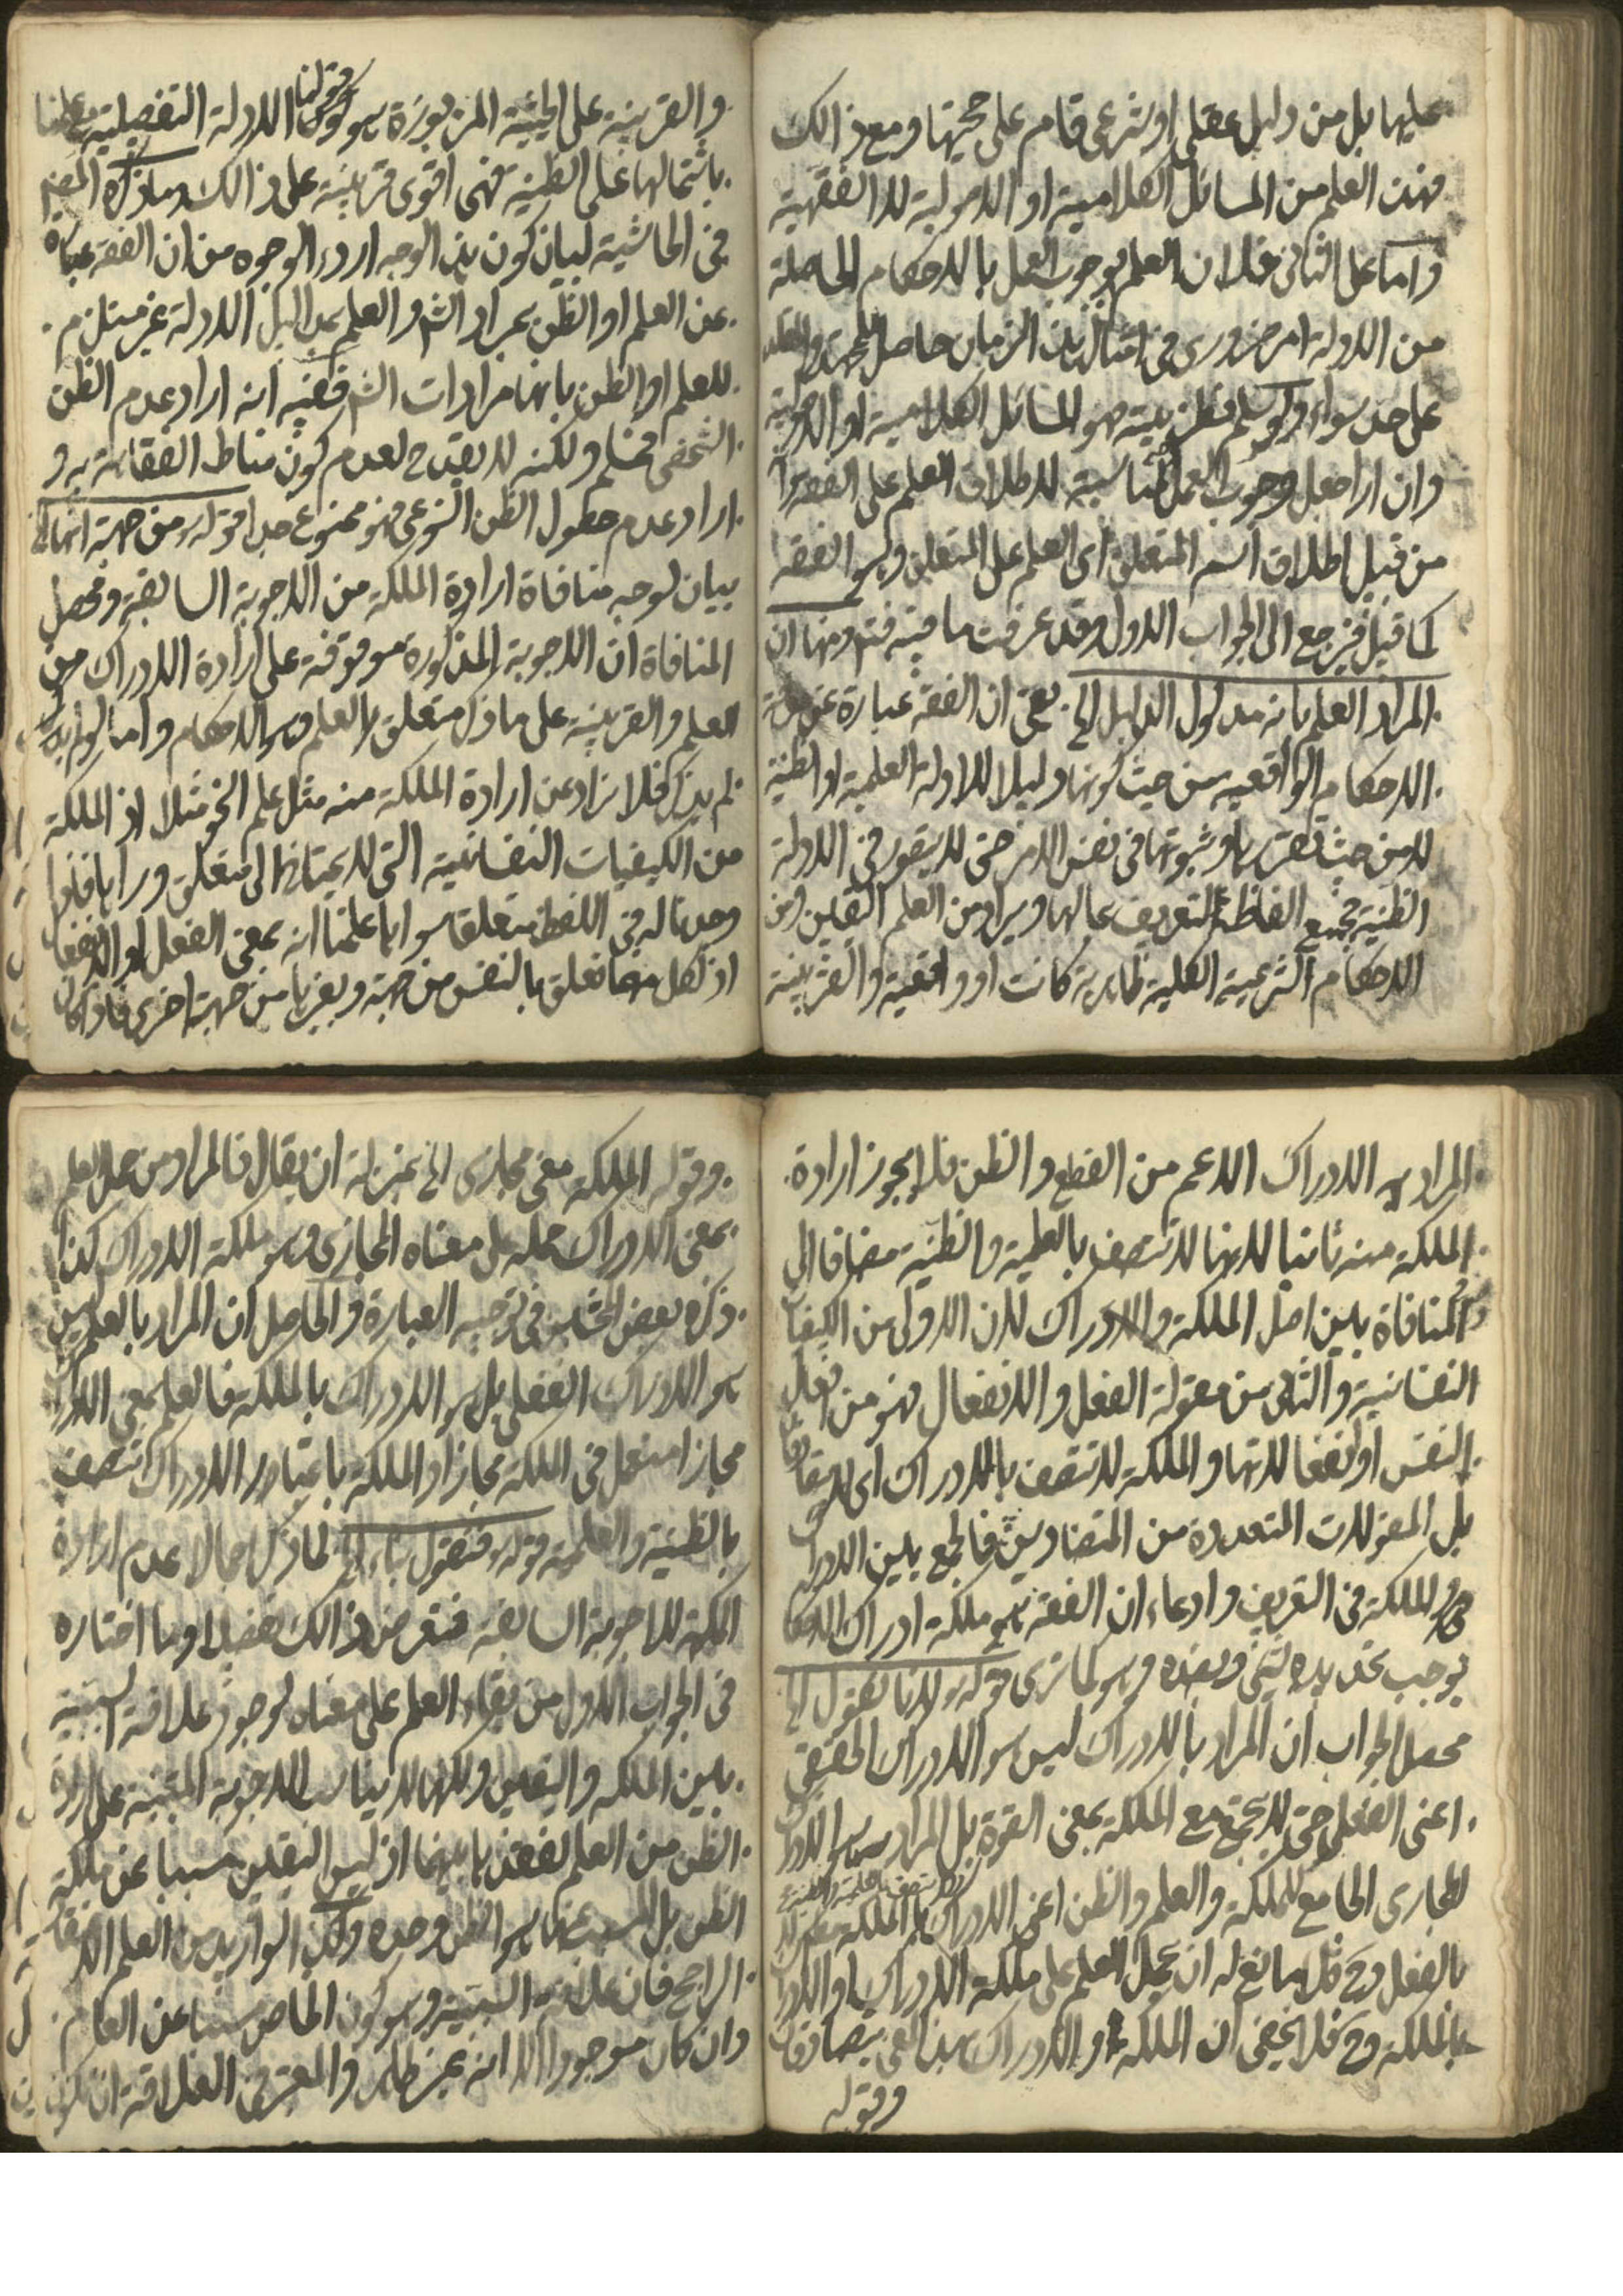 عليها بل من دليل عقلي او شرعي قام على حجيتها ومع ذالك
فهذا العلم من المسائل الكلامية او الاصولية لا الفقهية
واما على الثاني فلان العلم بوجوب العمل بالاحكام الحاصلة
من الادلة امر ضروري في امثال هذا الزمان حاصل للمجتهد والمقلد
على حد سواء ولو سلم نظريته فهو المسائل الكلامية او الاصولية
وان اراد جعل وجوب العمل مناسبة لاطلاق العلم على الفقه
من قبيل اطلاق اسم المتعلق اى العلم على المتعلق وهو الفقه
كما قيل فيرجع الى الجواب الاول وقد عرفت ما فيه فتم ومنها ان
المراد العلم بانه مدلول الدليل الخ يعنى ان الفقه عبارة عن
الاحكام الواقعيه من حيث كونها دليلا للادلة العلمية او الظنية
لا من حيث تقررها وثبوتها في نفس الامر حتى لا يتصور في الادلة
الظنية فجميع الفاظ التعريف بحالها ويراد من العلم اليقين ومن
الاحكام الشرعية الكلية ظاهرية كانت او واقعية والقرينة
والقرينة على الحيثية المزبورة هو قولنا الادلة التفصيلية مع علمنا
باشتمالها على الظنية فهى اقوى قرينة على ذالك وما ذكره المصنف
في الحاشية لبيان كون هذا الوجه اردء الوجوه من ان الفقه عبارة
عن العلم او الظن بمراد الش والعلم بمداليل الادلة غير مستلزم
للعلم او الظن بانها مرادات الش ففيه انه اراد عدم الظن
الشخصى فمسلم ولكنه لا يقدح لعدم كون مناط الفقاهة به و
اراد عدم حصول الظن النوعى فهو ممنوع جدا قوله ومن جهة انها الخ
بيان لوجه منافاة ارادة الملكة من الاجوبة السابقة ومحصل
المنافاة ان الاجوبة المذكورة موقوفة على ارادة الادراك من
العلم والقرينة على ما ذكر متعلق بالعلم وهو الاحكام واما لو
لم يذكر فلا نزاع عن ارادة الملكة منه مثل علم النحو مثلا اذ الملكة
من الكيفيات النفسانية التى لا يحتاج الى متعلق ورائها فاذا
وجدنا له في اللفظ متعلقا سواها علمنا انه بمعنى الفعل او الانفعال
اذ لكل منهما تعلق بالنفس من جهة وبغيرها من جهة اخرى فاذا كان
المراد به الادراك الاعم من القطع والظن فلا يجوز ارادة
الملكة منه ثانيا لانها لا تتصف بالعلمية والظنية مضافا الى
المنافاة بين اصل الملكة والادراك لان الاولى من الكيفيات
النفسانية والثانى من مقولة الفعل والانفعال فهو من افعال
النفس او انفعالاتها والملكة لا تتصف بالادراك اى
بل المقولات المتعددة من المتضادين فالجمع بين الادراك
والملكة في التعريف وادعاء ان الفقه هو ملكة ادراك الاحكام
يوجب تحديده بشئ وبضده وهو كما ترى قوله لانا نقول الخ
محصل الجواب ان المراد بالادراك ليس هو الادراك الحقيقى
اعنى الفعلى حتى لا يجتمع مع الملكة بمعنى القوة بل المراد هو الادراك
المجازى الجامع للملكة والعلم والظن اعنى الادراك بالملكة
بالفعل وح فلا مانع له ان يحمل العلم على ملكة الادراك او الادراك
بالملكة وح فلا يخفى ان الملكة والادراك بهذا المعنى يتصادقان
وقوله
وقوله الملكة معنى مجازى الخ بمنزلة ان يقال فالمراد من حمل العلم
بمعنى الادراك حمله على معناه المجازى وهو ملكة الادراك كذا
ذكره بعض المحشين في توجيه العبارة والحاصل ان المراد بالعلم ليس
هو الادراك الفعلى بل هو الادراك بالملكة فالعلم بمعنى الادراك
مجازا استعمل في الملكة مجازا والملكة باعتبار الادراك تتصف
بالظنية والعلمية قوله فنقول بناء الخ لما ذكر اجمالا عدم ارادة
الملكة للاجوبة السابقة فتعرض ذالك تفصيلا وما اختاره
في الجواب الاول من بقاء العلم على معناه لوجود علاقة السببية
بين الملكه واليقين ولكنها لا يناسب الاجوبة المبتنية على ارادة
الظن من العلم لفقدها بينهما اذ ليس اليقين مسببا عن ملكة
الظن بل المسبب عنها هو الظن وحده ولكن لو اريد من العلم الاعتقاد
الراجح فان علاقة السببية وهو كون الخاص مسببا عن العام
وان كان موجودا الا انه غير ظاهر والمعتبر في العلاقة ان تكون